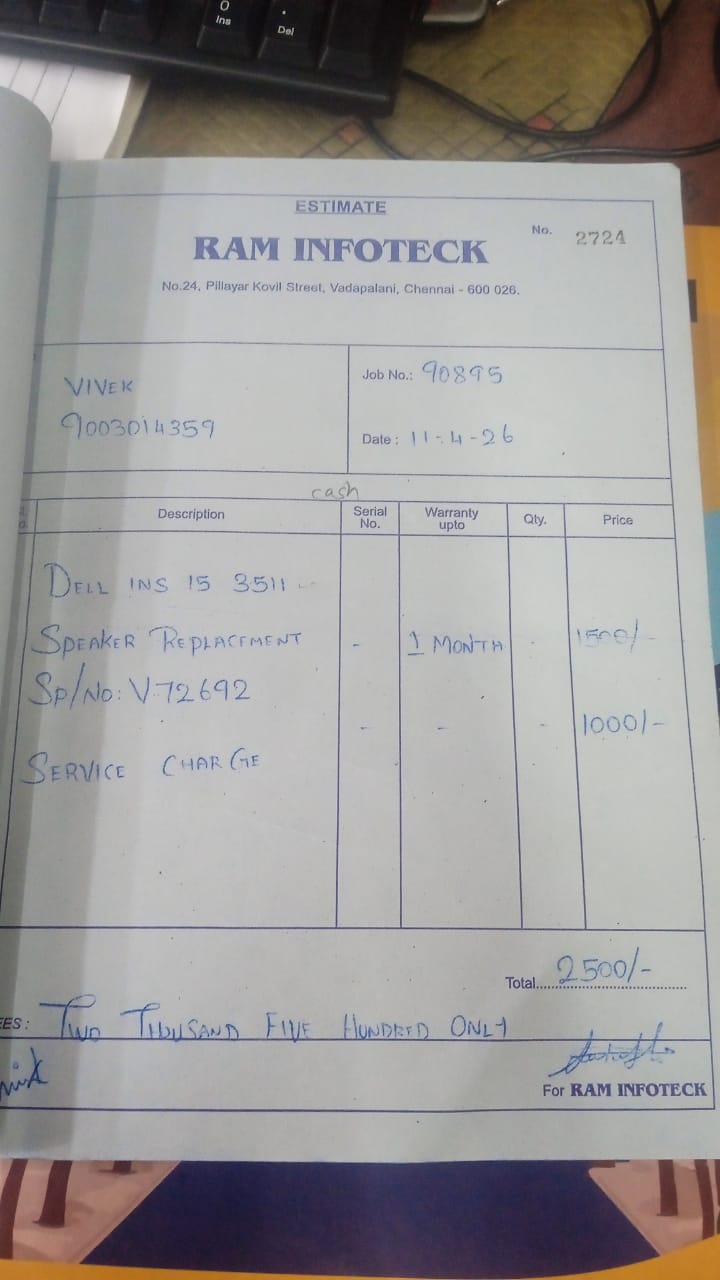 Ins
Del
ESTIMATE
RAM INFOTECK
No. 2724
No.24, Pillayar Kovil Street, Vadapalani, Chennai - 600 026.
VIVEK
9003014359
Job No.: 90895
Date : 11-4-26
cash
Description Serial No. Warranty upto Qty. Price
DELL INS 15 3511
SPEAKER REPLACEMENT - 1 MONTH - 1500/-
SP/NO: V-72692
- - - 1000/-
SERVICE CHARGE
Total 2500/-
EES : TWO THUSAND FIVE HUNDRED ONLY
For RAM INFOTECK